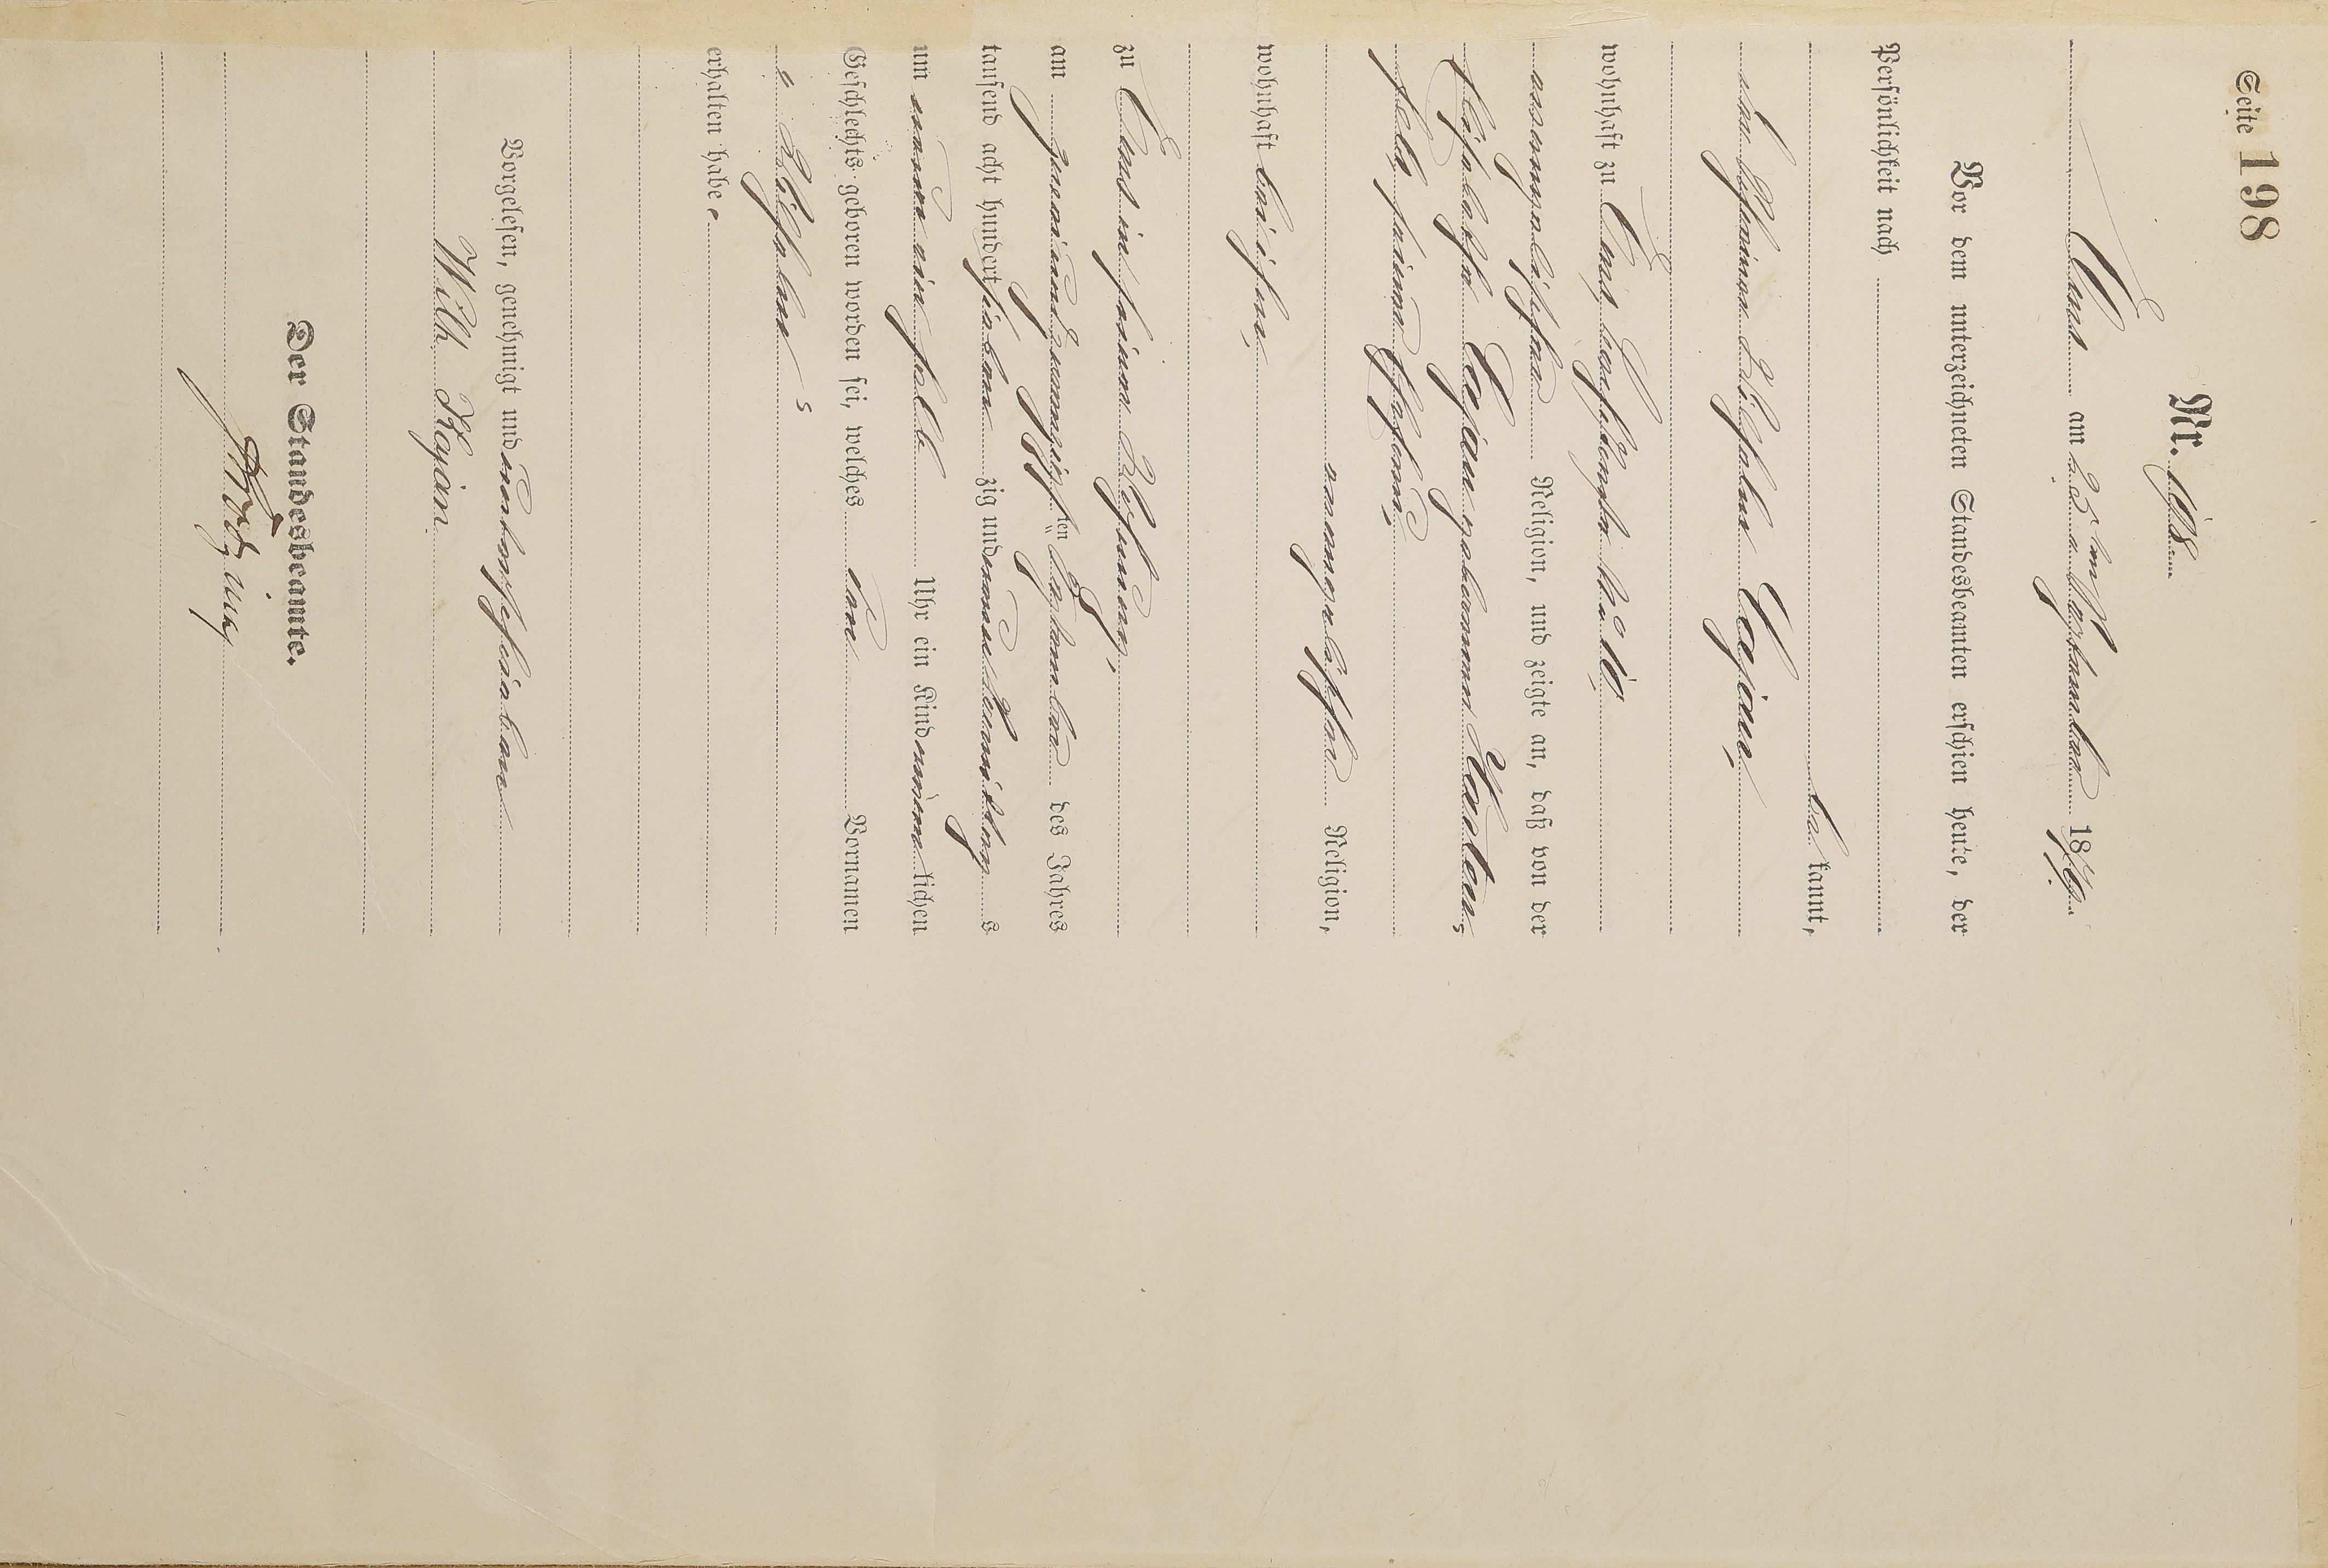 Seite 198
Nr. 198.
Ems am 25ten September 1879.
Vor dem unterzeichneten Standesbeamten erschien heute, der
Persönlichkeit nach
be kannt,
der Schreiner Wilhelm
wohnhaft zu Ems,
evangelischer Religion, und zeigte an, daß von der
Elisabethe geborenen
feld, seiner Ehefrau,
evangelischer Religion,
wohnhaft bei ihm,
zu Ems in seiner Wohnung,
am zweiundzwanzigsten September des Jahres
tausend acht hundert sieben zig und neun Vormittags
um neun ein halb Uhr ein Kind männlichen
Geschlechts geboren worden sei, welches den Vornamen
„ Wilhelm "
erhalten habe.
Vorgelesen, genehmigt und unterschrieben
Wilh. Kajan
Der Standesbeamte.